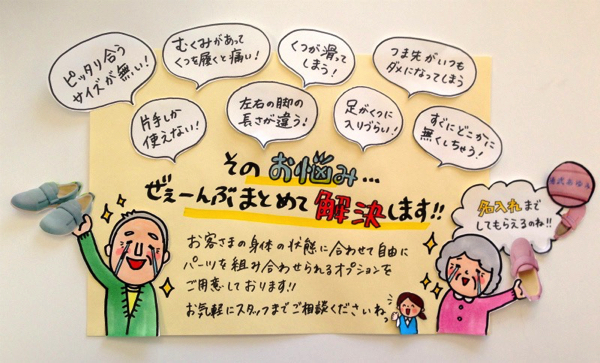 ピッタリ合う
サイズが無い!
むくみがあって
くつを履くと痛い!
くつが滑って
しまう!
つま先がいつも
ダメになってしまう
片手しか
使えない!
左右の脚の
長さが違う!
足がくつに
入りづらい!
すぐにどこかに
無くしちゃう!
そのお悩み…
ぜぇーんぶまとめて解決します!!
名入れまで
してもらえるのね!!
お客さまの身体の状態に合わせて自由に
パーツを組み合わせられるオプションを
ご用意しております!!
お気軽にスタッフまでご相談くださいねっ